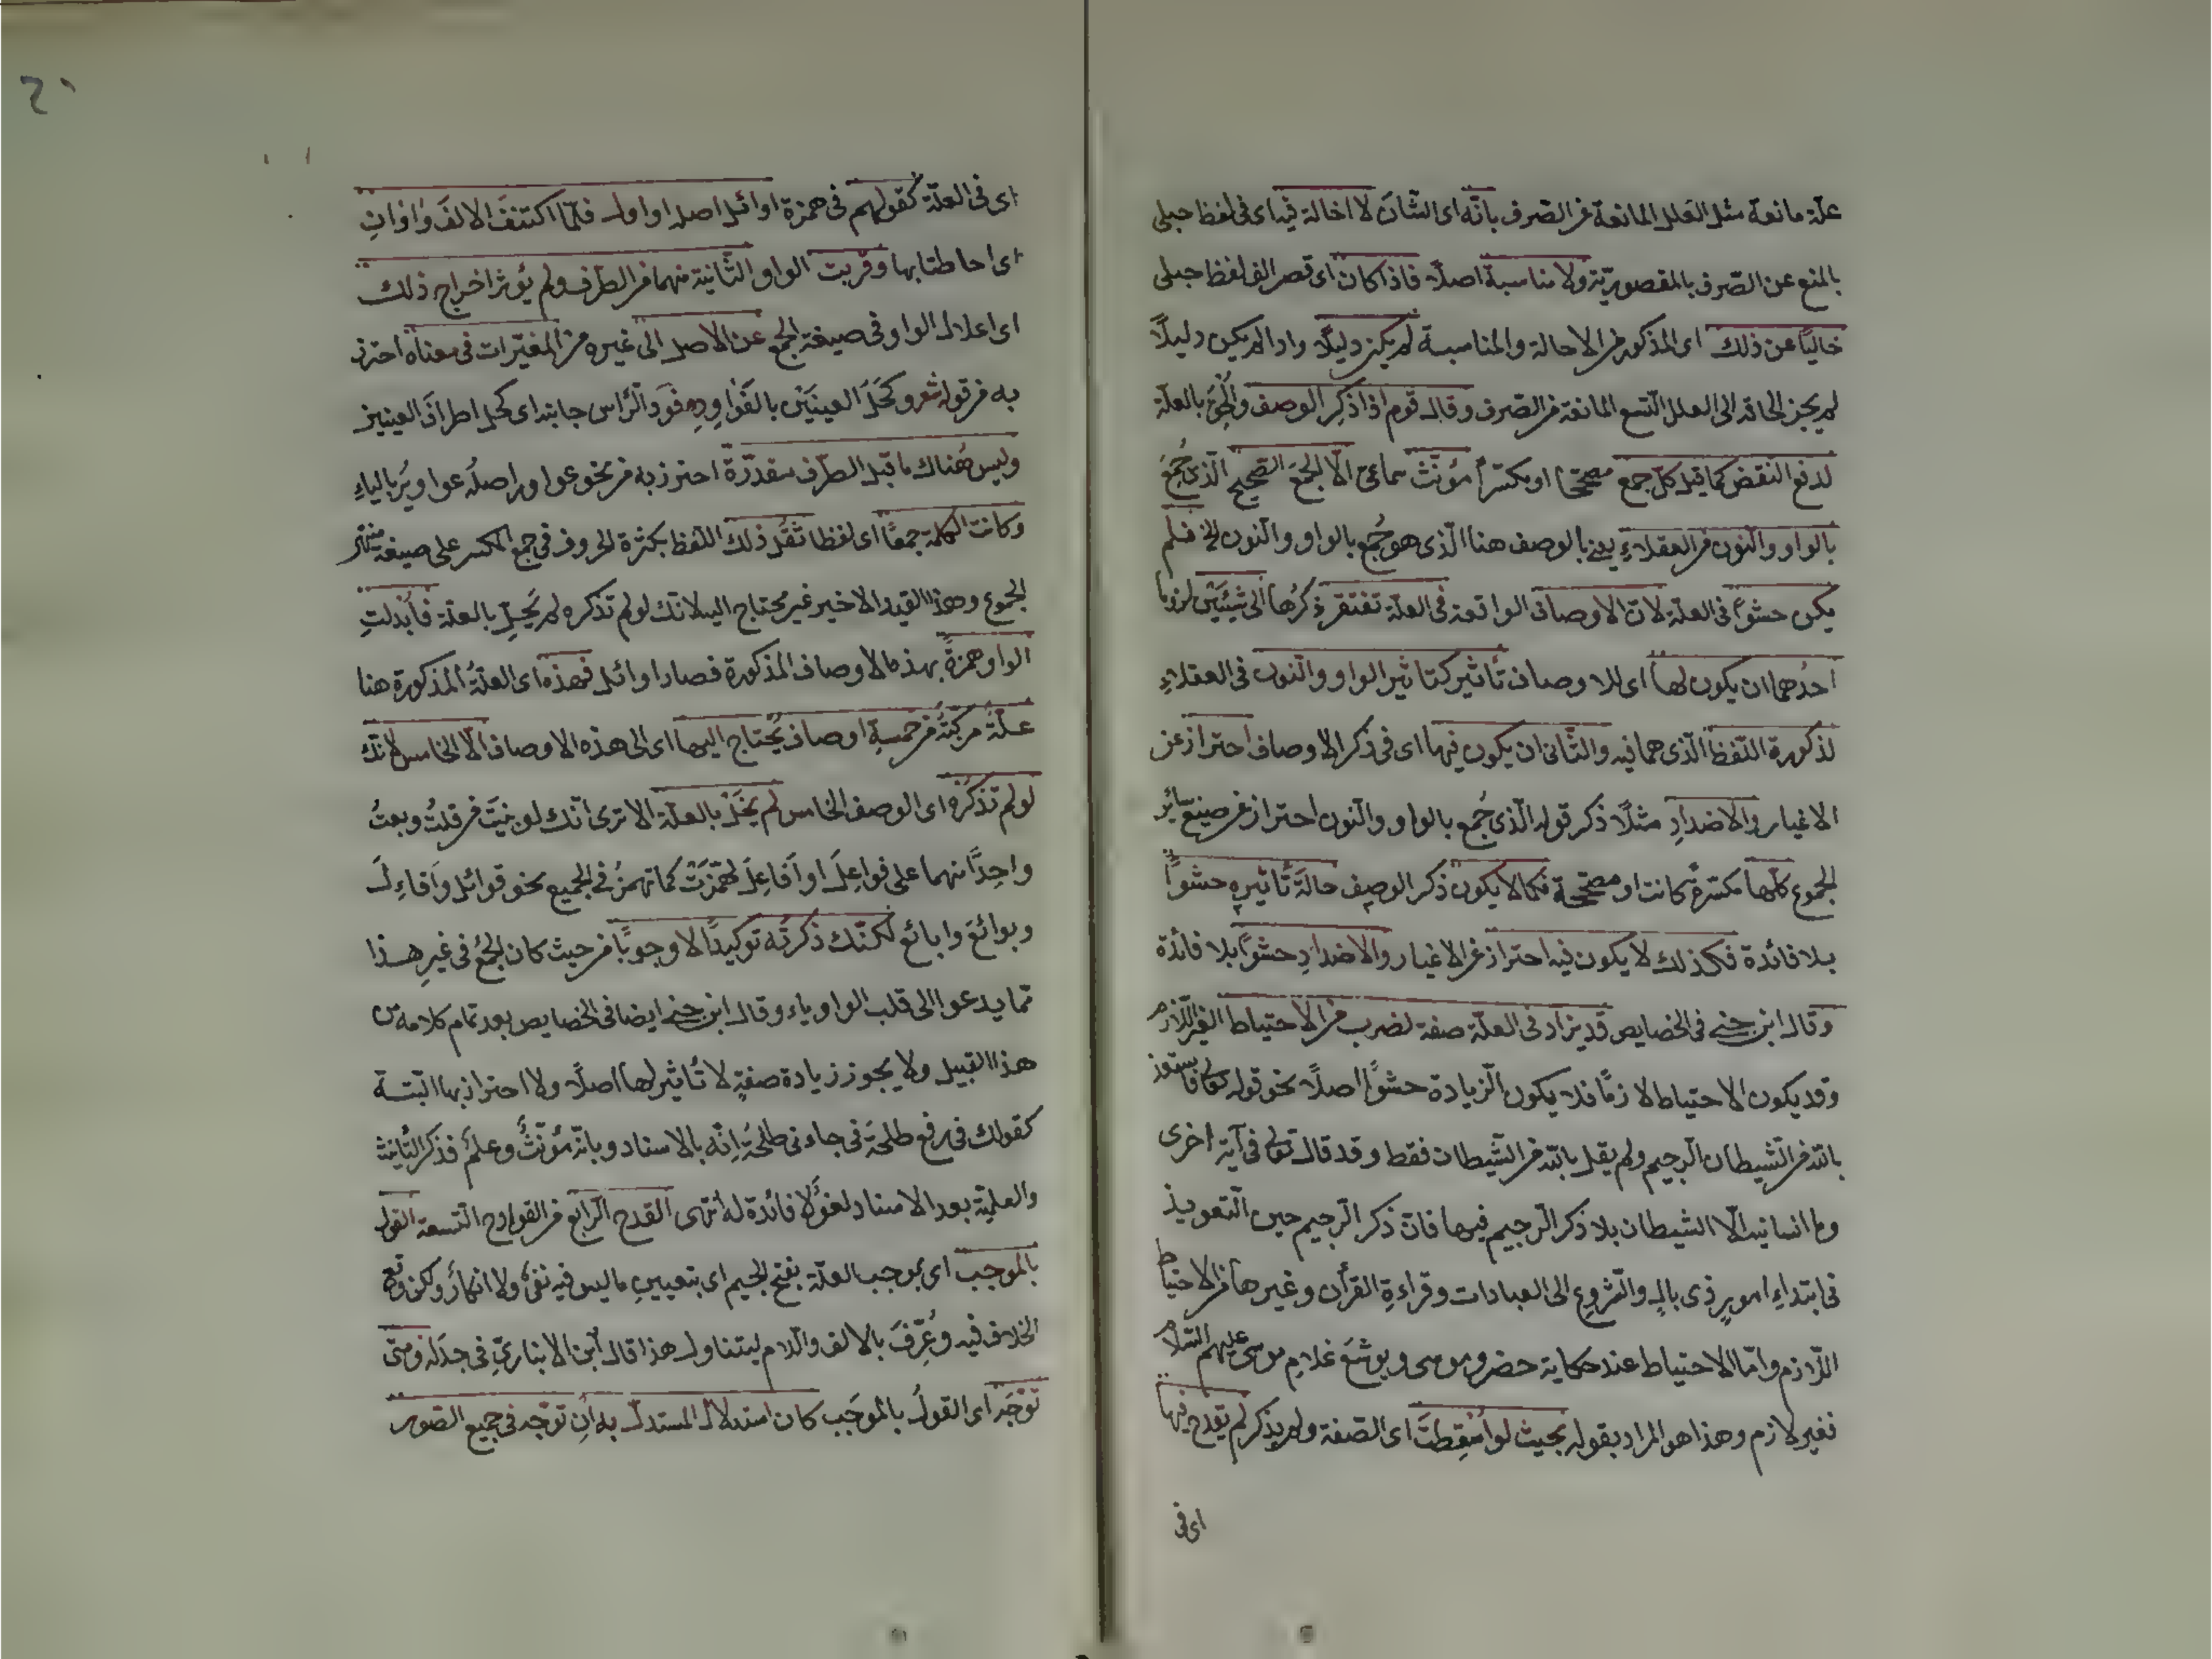 علة مانعة مثل العلل المانعة من الصرف بانّه اى الشان لا اخالة فيه اى فى لفظ حبلى
بالمنع عن الصّرف بالمقصوريّة ولا مناسبة اصلًا فاذا كان اى قصر الف لفظ حبلى
خاليًا عن ذلك اى المذكور من الاحالة والمناسبة لم يكن دليلًا واذا لم يكن دليلًا
لم يجز الحاقه الى العلل التسع المانعة من الصّرف وقال قوم اذا ذكر الوصف والحق بالعلّة
لدفع النقض كما قيل كلّ جمع مصحّحا او مكسّرا مؤنّث سماعىّ الّا الجمعَ الصّحيح الّذى جُمِعَ
بالواو والنون من العقلاءِ يعنى بالوصف هنا الّذى هو جُمع بالواو والنون الخ فلم
يكن حشوًا فى العلّة لانّ الاوصاف الواقعة فى العلّة تفتقر ذكرُها الى شيئين
احدُهما ان يكون لها اى للاوصاف تأثير كتاثير الواو والنون فى العقلاءِ
لذكورة اللّفظ الّذى هما فيه والثّانى ان يكون فيها اى فى ذكر الاوصاف احتراز عن
الاغيار والاضدادِ مثلًا ذكر قوله الّذى جُمع بالواو والنون احتراز عن صيغ سائر
الجموع كلّها مكسّرة كانت او مصحّحة فكما لا يكون ذكر الوصف حالَةَ تأثيره حشوًا
بلا فائدة فكذلك لا يكون فيه احتراز عن الاغيار والاضدادِ حشوًا بلا فائدة
وقال ابن جنى فى الخصايص قد يزاد فى العلّة صفة لضرب من الاحتياط الغير اللّازم
وقد يكون الاحتياط لازمًا فلا يكون الزيادة حشوًا اصلًا نحو قوله تعالى فاستعذ
بالله من الشّيطان الرّجيم ولم يقل بالله من الشّيطان فقط وقد قال تعالى فى آية اخرى
وما انسانيه الّا الشيطان بلا ذكر الرّجيم فيها فانّ ذكر الرّجيم حين التعويذ
فى ابتداءِ امورٍ ذى بالٍ والشروعِ الى العبادات وقراءةِ القرأن وغيرها من الاحتياط
اللّازم وامّا الاحتياط عند حكاية خضر وموسى ويوشَع غلامِ موسى عليهم السّلام
فغير لازم وهذا هو المراد بقوله بحيث لو اُسْقِطَت اى الصّفة ولم يذكر لم يقدح فيها
اى فى
اى فى العلّة كقولهم فى همزة اوائل اصله اواول فلمّا اكتنفَ الالفَ واوانِ
اى احاطتا بها وقربت الواو الثّانية منهما من الطّرف ولم يؤثر اخراج ذلك
اى اعلال الواو فى صيغة الجمع عن الاصل الى غيره من المغيّرات فى معناه احترز
به من قوله شعر وكَحَلَ العينَين بالعَوَاوِرِ جابته اى كحل اطراف العينين
وليس هُناك ما قبل الطّرف مقدّرةً احترز به من نحو عواور اصلُه عواوير بالياءِ
وكانت الكلمة جمعًا اى لفظا ثقُل ذلك اللّفظ بكثرة الحروف فى جمع المكسر على صيغة منتهى
الجموع وهذا القيد الاخير غير محتاج اليه لانك لو لم تذكره لم يَخِلّ بالعلّة فاُبدلتِ
الواو همزةً بهذه الاوصاف المذكورة فصار اوائل فهذه اى العلّةُ المذكورة هنا
علّةٌ مركبةٌ من خمسةِ اوصاف يُحتاج اليها اى الى هذه الاوصاف الّا الخامس لانّك
لو لم تذكُرْه اى الوصف الخامس لم يَخِلّ بالعلّة الا ترى انّك لو بنيتَ من قلتُ وبعتُ
واحِدًا منهما على فواعِلَ او اَفاعِلَ لهَمَزْتَ كما تهمزُ فى الجميع نحو قوائل واَقاءِلَ
وبوائعَ وابائع لكنّك ذكرتَه توكيدًا لا وجوبًا من حيث كان الجمعُ فى غيرِ هذا
ممّا يدعوا الى قلب الواو ياء وقال ابن جنى ايضا فى الخصايص بعد تمام كلامه من
هذا القبيل ولا يجوز زيادة صفةٍ لا تأثير لها اصلًا ولا احتراز بها البتة
كقولك فى رفع طلحةَ فى جاءنى طلحةُ اِنّه بالاسناد وبانّه مؤنّثٌ وعلَم فذكر التانيث
والعلميّة بعد الاسناد لغوٌ لا فائدة له انتهى القدح الرّابع من القوادح التسعة القول
بالموجَب اى بموجب العلّة بفتح الجيم اى بتعيينِ ما ليس فيه نفىٌ ولا انكارٌ ولكن وقع
الخلاف فيه وعُرِّفَ بالالف والّلام ليتناول هذا قال ابن الانبارىّ فى جدَله ومتى
تَوَجّهَ اى القولُ بالموجَب كان استدلال المستدل به ان توجّه فى جميع الصّور